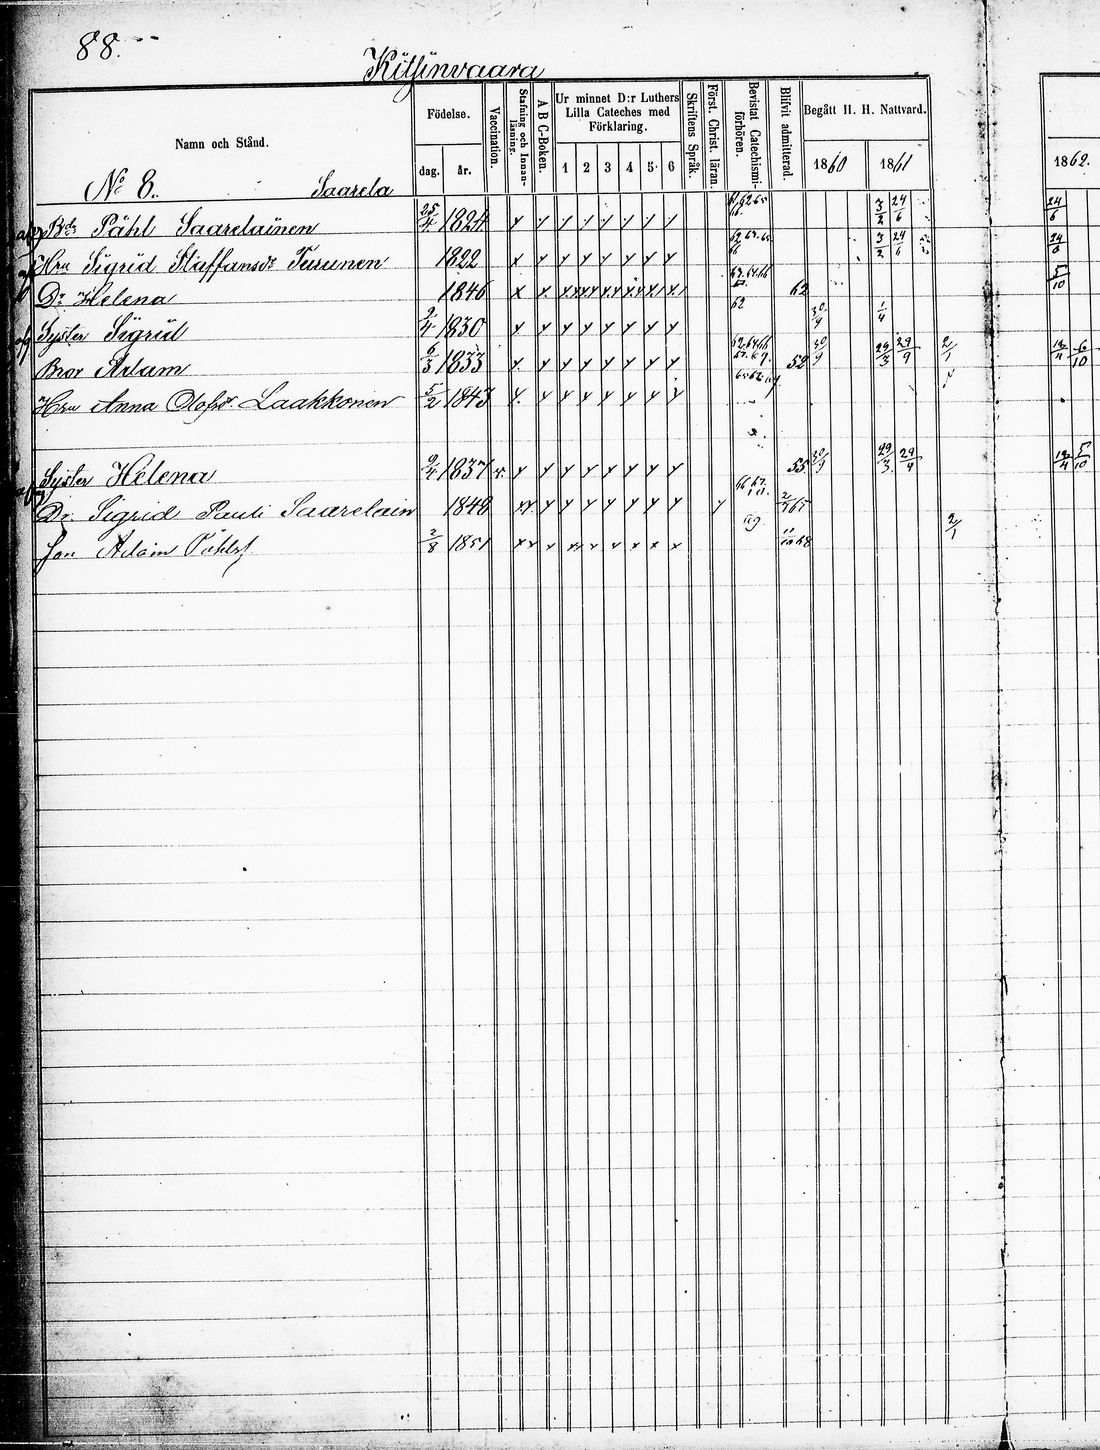 88.
Kitsinvaara
Namn och Stånd. Födelse. dag. år. Vaccination. Stafning och Innanläsning. A B C-Boken. Ur minnet D:r Luthers Lilla Cateches med Förklaring. 1 2 3 4 5 6 Skriftens Språk. Först. Christ. läran. Bevistat Catechismiförhören. Blifvit admitterad. Begått H. H. Nattvard. 1860 1861 1862.
No 8. Saarela
Påhl Saarelainen 25/4 1824 3/2 24/6 24/6
Hru Sigrid Staffansdr Turunen 1822 3/2 24/6 24/6
Dr Helena 1846 62 5/10
Syster Sigrid 2/4 1830 62 30/9 1/4
Bror Adam 6/3 1833 52 30/9 29/3 29/9 2/1 6/10
Hru Anna Olofsdr Laakkonen 5/2 1843
Syster Helena 9/4 1837 v. 55 30/9 29/3 29/9 5/10
Dr. Sigrid Pauli Saarelain 1848 65
Son Adam Påhlsf 2/8 1851 68 2/1